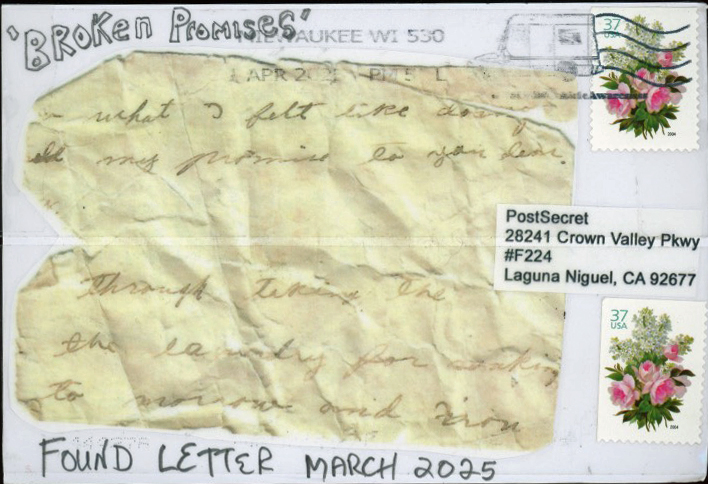 'BROKEN PROMISES'
MILWAUKEE WI 530
1 APR 2 PM 5 L
37
USA
2004
what I felt like doing
my promise to you dear.
PostSecret
28241 Crown Valley Pkwy
#F224
Laguna Niguel, CA 92677
through taking the
the laundry for soaking
to morrow and iron
37
USA
2004
FOUND LETTER MARCH 2025